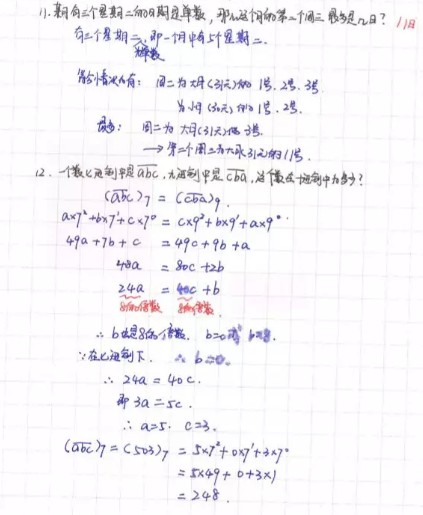 11. 某月有三个星期二的日期是单数，那么这个月的第二个周三最多是几日？ 11日
有三个星期二为单数，即一个月中有5个星期二.
符合情况有： 周二为大月(31天)的 1号. 2号. 3号
为小月(30天)的 1号. 2号.
最多： 周二为大月(31天)的 3号.
→ 第二个周三为大月31天的11号.
12. 一个数七进制中是abc，九进制中是cba，这个数在十进制中为多少？
(abc)₇ = (cba)₉.
a×7²+b×7¹+c×7⁰ = c×9²+b×9¹+a×9⁰
49a+7b+c = 49c+9b+a
48a = 80c+2b
24a = 40c+b
8的倍数 8的倍数.
∴ b也是8的倍数. b=0或 b=8.
∵在七进制下. ∴ b=0.
∴ 24a = 40c.
即 3a=5c.
∴ a=5. c=3.
(abc)₇ = (503)₇ = 5×7²+0×7¹+3×7⁰
= 5×49+0+3×1
= 248.